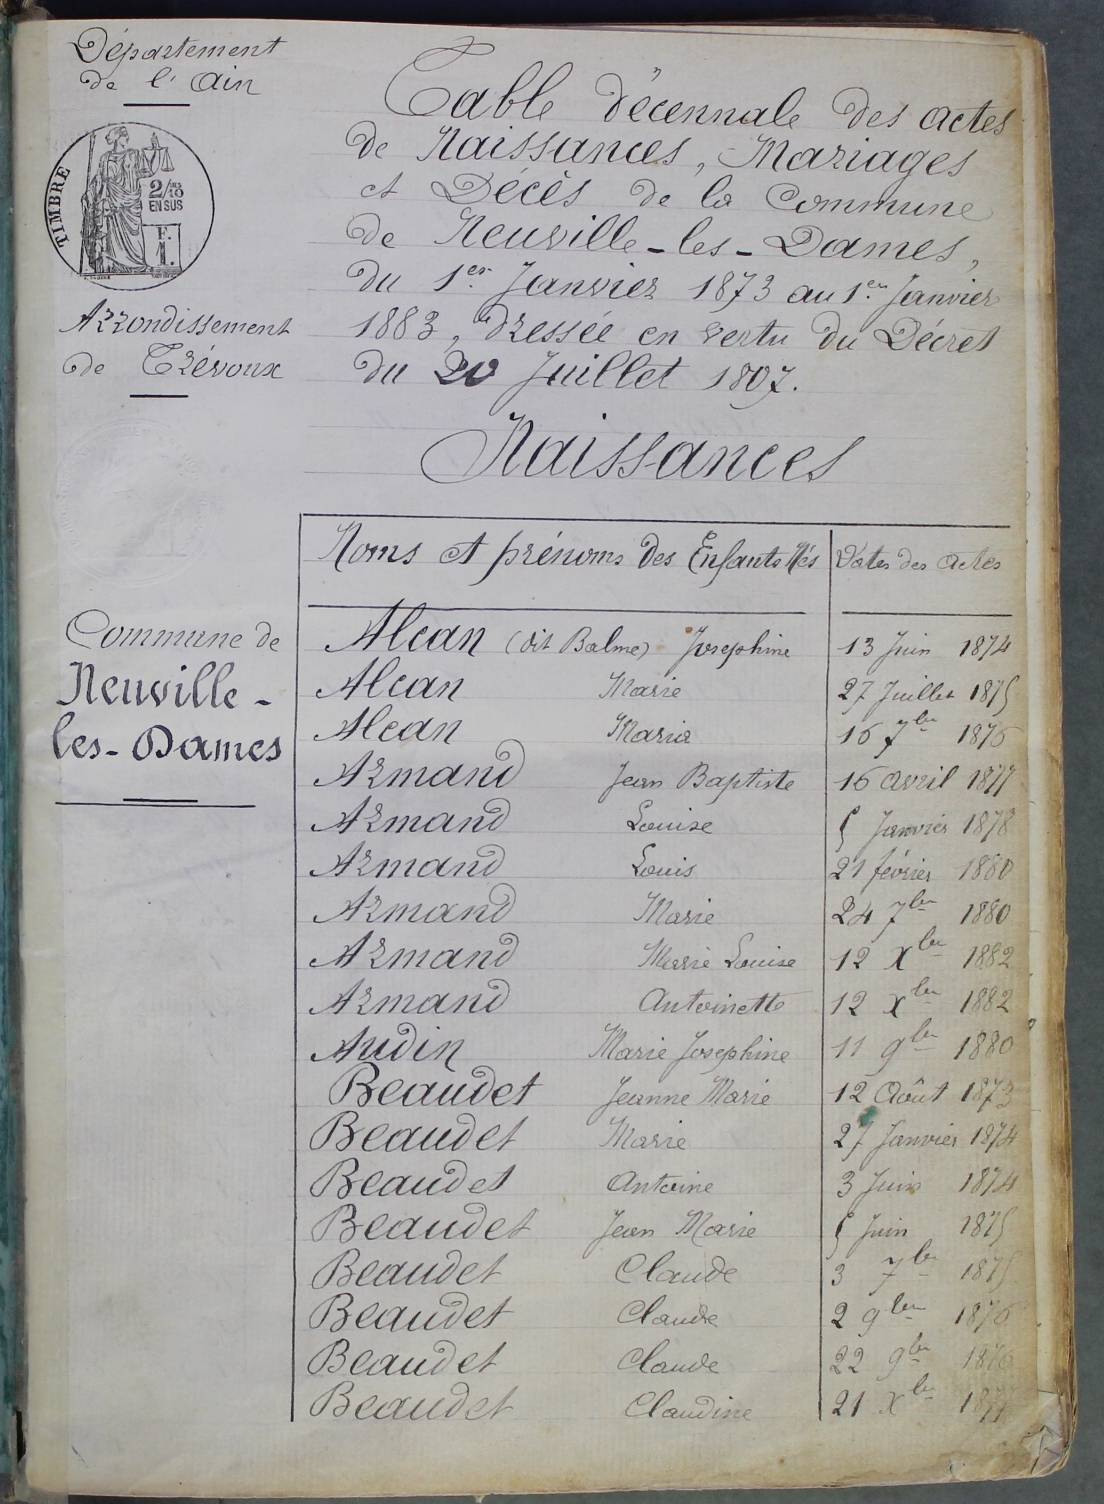 Département
de l'Ain
TIMBRE
2/10
EN SUS
Arrondissement
de Trévoux
Commune de
Neuville-
les-Dames
Table décennale des actes
de Naissances, Mariages
et Décès de la Commune
de Neuville-les-Dames,
du 1er Janvier 1873 au 1er Janvier
1883, dressée en vertu du Décret
du 20 Juillet 1807.
Naissances
Noms et prénoms des Enfants Nés Dates des actes
Alcan (dit Balme) Josephine 13 Juin 1874
Alcan Marie 27 Juillet 1875
Alcan Maria 16 7bre 1876
Armand Jean Baptiste 16 avril 1877
Armand Louise 5 Janvier 1878
Armand Louis 21 février 1880
Armand Marie 24 7bre 1880
Armand Marie Louise 12 Xbre 1882
Armand Antoinette 12 Xbre 1882
Audin Marie Josephine 11 9bre 1880
Beaudet Jeanne Marie 12 Août 1873
Beaudet Marie 27 Janvier 1874
Beaudet Antoine 3 Juin 1874
Beaudet Jean Marie 5 Juin 1875
Beaudet Claude 3 7bre 1875
Beaudet Claude 2 9bre 1876
Beaudet Claude 22 9bre 1876
Beaudet Claudine 21 Xbre 1877